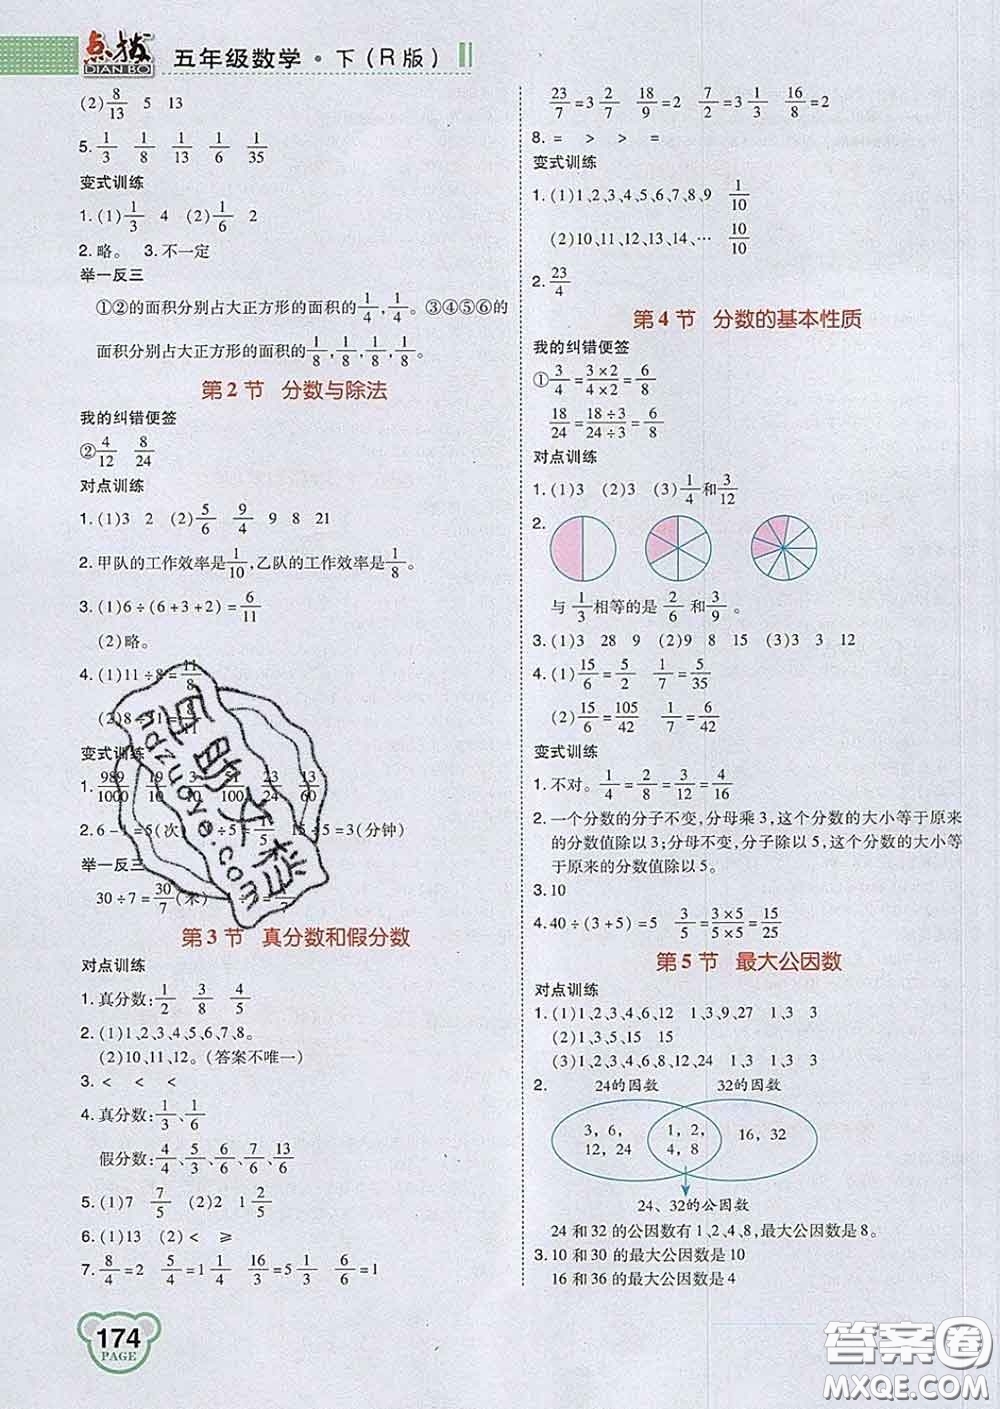 点拨
DIAN BO
五年级数学·下（R版）
(2) 8/13 5 13
5. 1/3 1/8 1/13 1/6 1/35
变式训练
1. (1) 1/3 4 (2) 1/6 2
2. 略。 3. 不一定
举一反三
①②的面积分别占大正方形的面积的 1/4, 1/4。③④⑤⑥的
面积分别占大正方形的面积的 1/8, 1/8, 1/8, 1/8。
第2节 分数与除法
我的纠错便签
② 4/12 8/24
对点训练
1. (1)3 2 (2) 5/6 9/4 9 8 21
2. 甲队的工作效率是 1/10,乙队的工作效率是 1/8。
3. (1)6÷(6+3+2)= 6/11
(2)略。
4. (1)11÷8= 11/8
(2)8÷11= 8/11
变式训练
1. 989/1000 19/10 3/10 51/100 23/24 13/60
2. 6-1=5(次) ÷5= /5 15÷5=3(分钟)
举一反三
30÷7= 30/7 (米) ÷7= /7
第3节 真分数和假分数
对点训练
1. 真分数: 1/2 3/8 4/5
2. (1)1、2、3、4、5、6、7、8。
(2)10、11、12。(答案不唯一)
3. < < <
4. 真分数: 1/3、1/6
假分数: 4/4、5/3、6/6、7/6、13/6
5. (1)7 7/5 (2)2 1 2/5
6. (1)13 (2)< ≥
7. 8/4=2 5/4=1 1/4 16/3=5 1/3 6/6=1
174
PAGE
23/7=3 2/7 18/9=2 7/2=3 1/3 16/8=2
8. = > > =
变式训练
1. (1)1、2、3、4、5、6、7、8、9 1/10
(2)10、11、12、13、14、… 10/10
2. 23/4
第4节 分数的基本性质
我的纠错便签
① 3/4= 3×2/4×2= 6/8
18/24= 18÷3/24÷3= 6/8
对点训练
1. (1)3 (2)3 (3) 1/4和3/12
2.
与 1/3 相等的是 2/6 和 3/9。
3. (1)3 28 9 (2)9 8 15 (3)3 3 12
4. (1) 15/6= 5/2 1/7= 5/35
(2) 15/6= 105/42 1/7= 6/42
变式训练
1. 不对。1/4= 2/8= 3/12= 4/16
2. 一个分数的分子不变,分母乘3,这个分数的大小等于原来
的分数值除以3;分母不变,分子除以5,这个分数的大小等
于原来的分数值除以5。
3. 10
4. 40÷(3+5)=5 3/5= 3×5/5×5= 15/25
第5节 最大公因数
对点训练
1. (1)1、2、3、4、6、12 1、3、9、27 1、3 3
(2)1、3、5、15 15
(3)1、2、3、4、6、8、12、24 1、3 1、3 3
2.
24的因数 32的因数
3，6， 1，2， 16，32
12，24 4，8
24、32的公因数
24和32的公因数有1、2、4、8,最大公因数是8。
3. 10和30的最大公因数是10
16和36的最大公因数是4
百助文档
dzuoye.com
答案圈
MXQE.COM